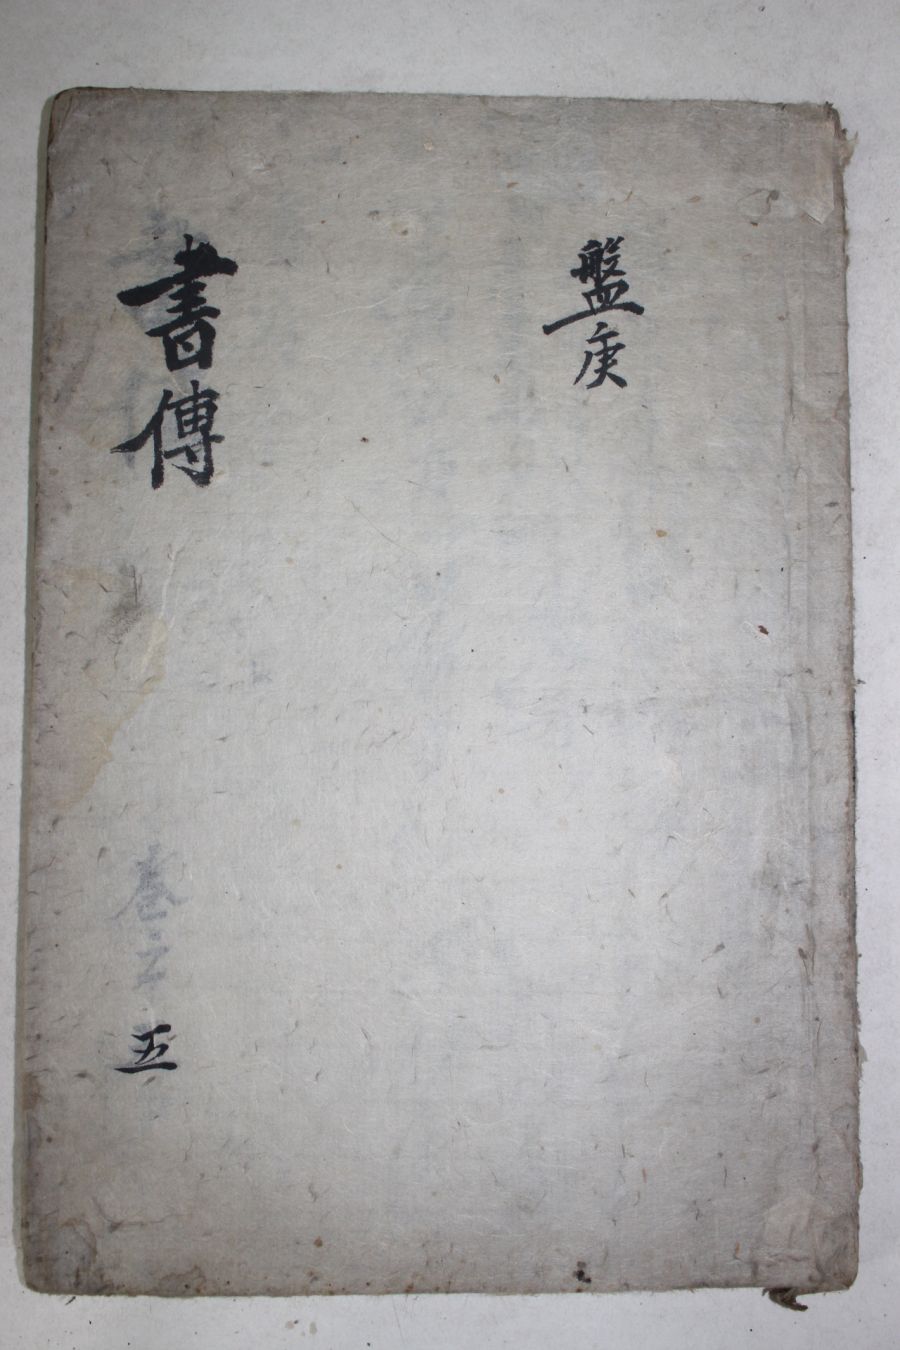 盤庚
書傳
卷之
五